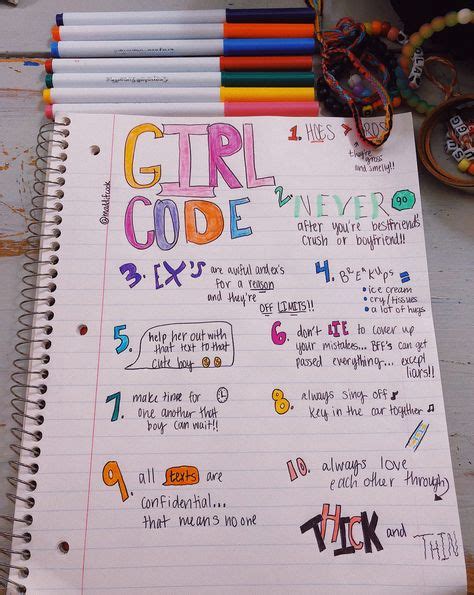 GIRL
CODE
@mattifrank
1. HOES > BROS
they're gross
and smelly!!
2 NEVER go
after you're bestfriends
crush or boyfriend!!
3. EX'S are awful and ex's
for a reason
and they're
OFF LIMITS!!
4. BREAKUPS =
• ice cream
• cry/tissues
• a lot of hugs
5. help her out with
that text to that
cute boy
6. don't LIE to cover up
your mistakes... BFF's can get
passed everything... except
liars!!
7 make time for
one another that
boy can wait!!
8. always sing off
Key in the car together
9. all texts are
confidential...
that means no one
10. always love
each other through
THICK and THIN